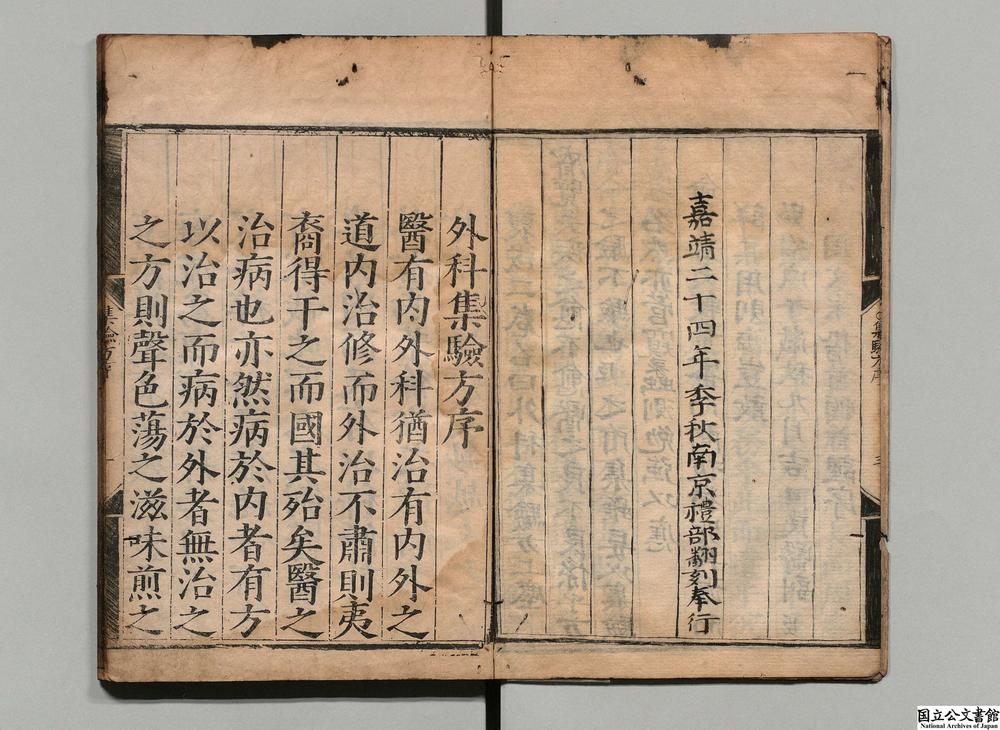 嘉靖二十四年季秋南京禮部翻刻奉行
外科集驗方序
醫有内外科猶治有内外之
道内治修而外治不肅則夷
裔得干之而國其殆矣醫之
治病也亦然病於内者有方
以治之而病於外者無治之
之方則聲色蕩之滋味煎之
国立公文書館
National Archives of Japan